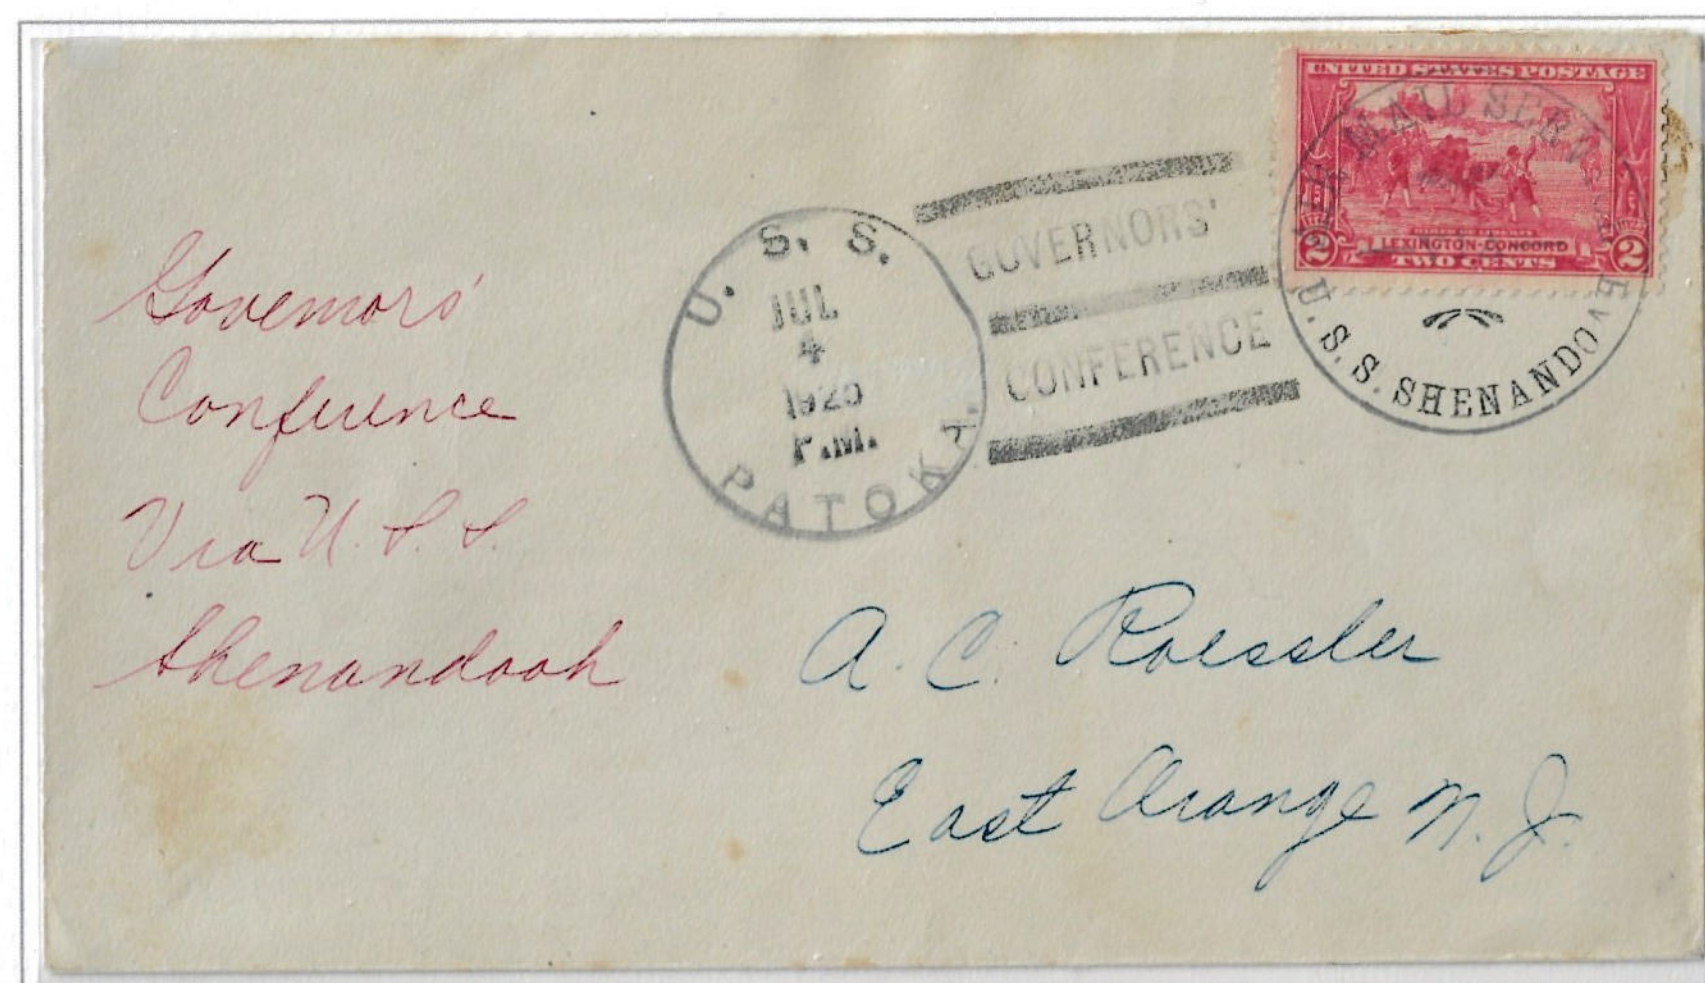 UNITED STATES POSTAGE
BIRTH OF LIBERTY
LEXINGTON-CONCORD
2 TWO CENTS 2
MAIL SERV
U.S.S. SHENANDO
U. S. S.
JUL
4
1925
P.M.
PATOKA.
GOVERNORS'
CONFERENCE
Governors'
Conference
Via U.S.S.
Shenandoah
A. C. Roessler
East Orange N. J.